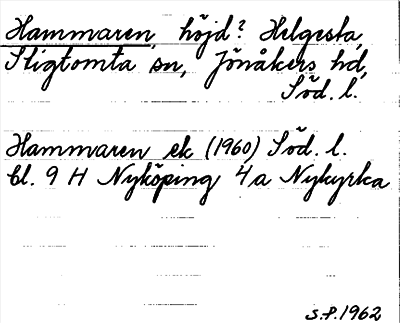 Hammaren, höjd? Helgesta,
Stigtomta sn, Jönåkers hd,
Söd. l.
Hammaren ek (1960) Söd. l.
bl. 9 H Nyköping 4a Nykyrka
S.P. 1962